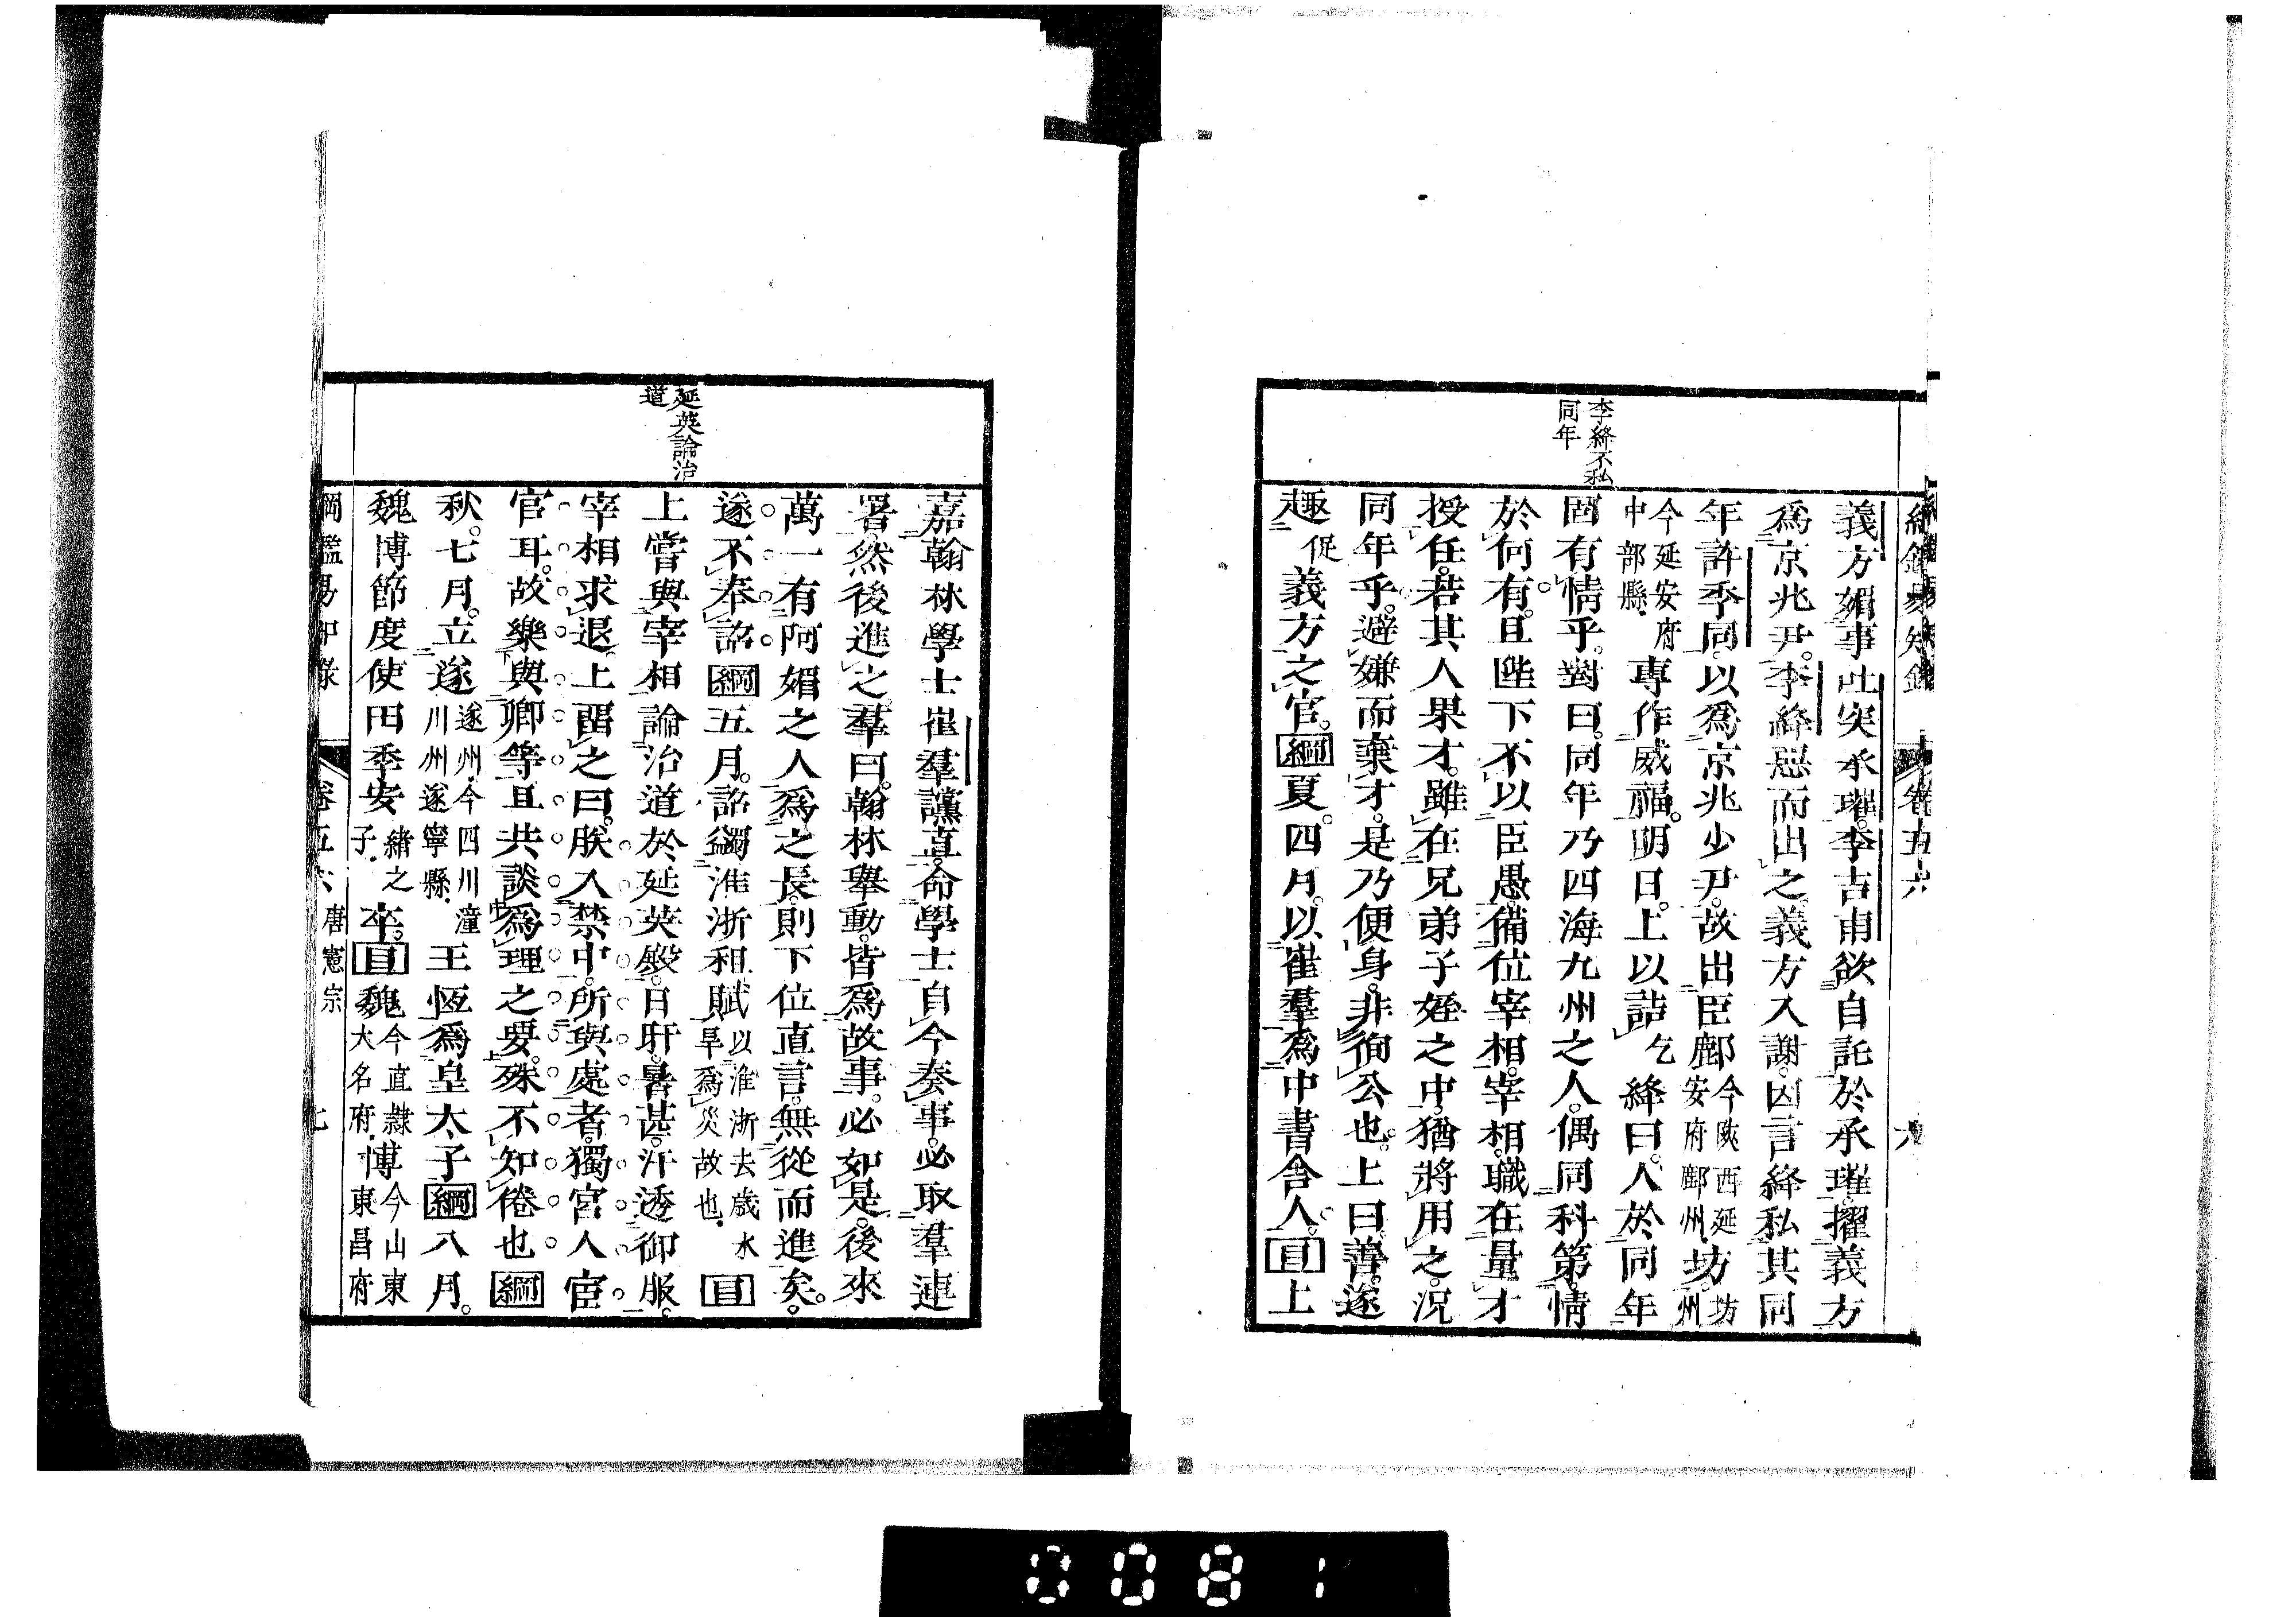 綱鑑易知錄 卷五六 六
李絳不私
同年
義方媚事吐突承璀。李吉甫欲自託於承璀。擢義方
爲京兆尹。李絳惡而出之。義方入謝。因言絳私其同
年許季同。以爲京兆少尹。故出臣鄜今陝西延安府鄜州。坊坊州
今延安府中部縣。專作威福。明日。上以詰乞絳曰。人於同年
固有情乎。對曰。同年乃四海九州之人。偶同科第。情
於何有。且陛下不以臣愚。備位宰相。宰相職在量才
授任。若其人果才。雖在兄弟子姪之中。猶將用之。況
同年乎。避嫌而棄才。是乃便身。非徇公也。上曰。善。遂
趣促義方之官。綱夏。四月。以崔羣爲中書舍人。目上
延英論治
道
嘉翰林學士崔羣讜直。命學士自今奏事。必取羣連
署。然後進之。羣曰。翰林舉動。皆爲故事。必如是。後來
萬一有阿媚之人爲之長。則下位直言。無從而進矣。
遂不奉詔 綱五月。詔蠲淮浙租賦以淮浙去歲水旱爲災故也。目
上嘗與宰相論治道於延英殿。日旰。暑甚。汗透御服。
宰相求退。上畱之曰。朕入禁中。所與處者。獨宮人宦
官耳。故樂與卿等且共談爲理之要。殊不知倦也 綱
秋。七月。立遂遂州。今四川潼川州遂寧縣。王恆爲皇太子 綱八月。
魏博節度使田季安緒之子。卒。目魏今直隸大名府。博今山東東昌府
綱鑑易知錄 卷五六 唐憲宗 七
0081